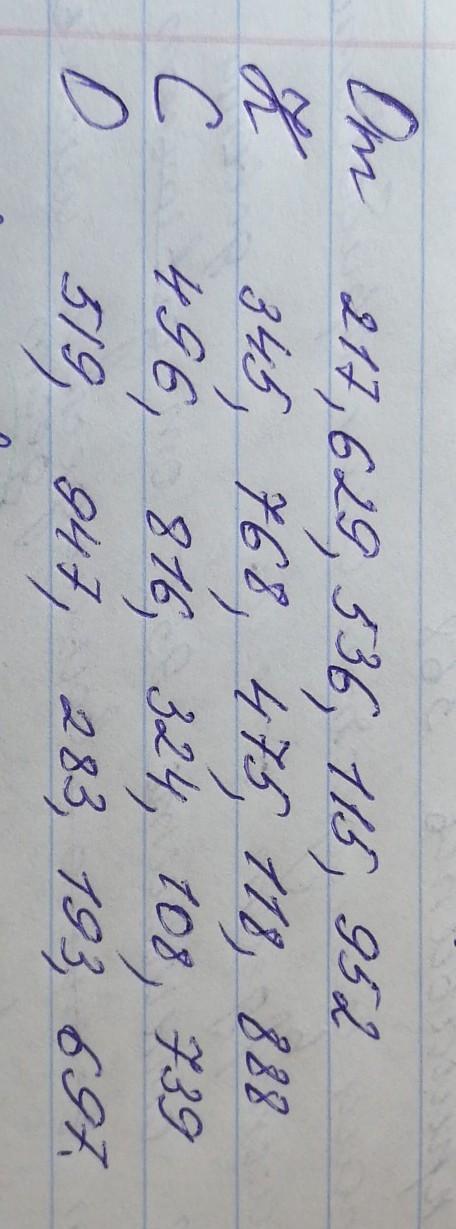 От 217, 629, 536, 115, 952
Ж 345, 768, 475, 118, 888
С 496, 816, 324, 108, 739
О 519, 947, 283, 193, 697.